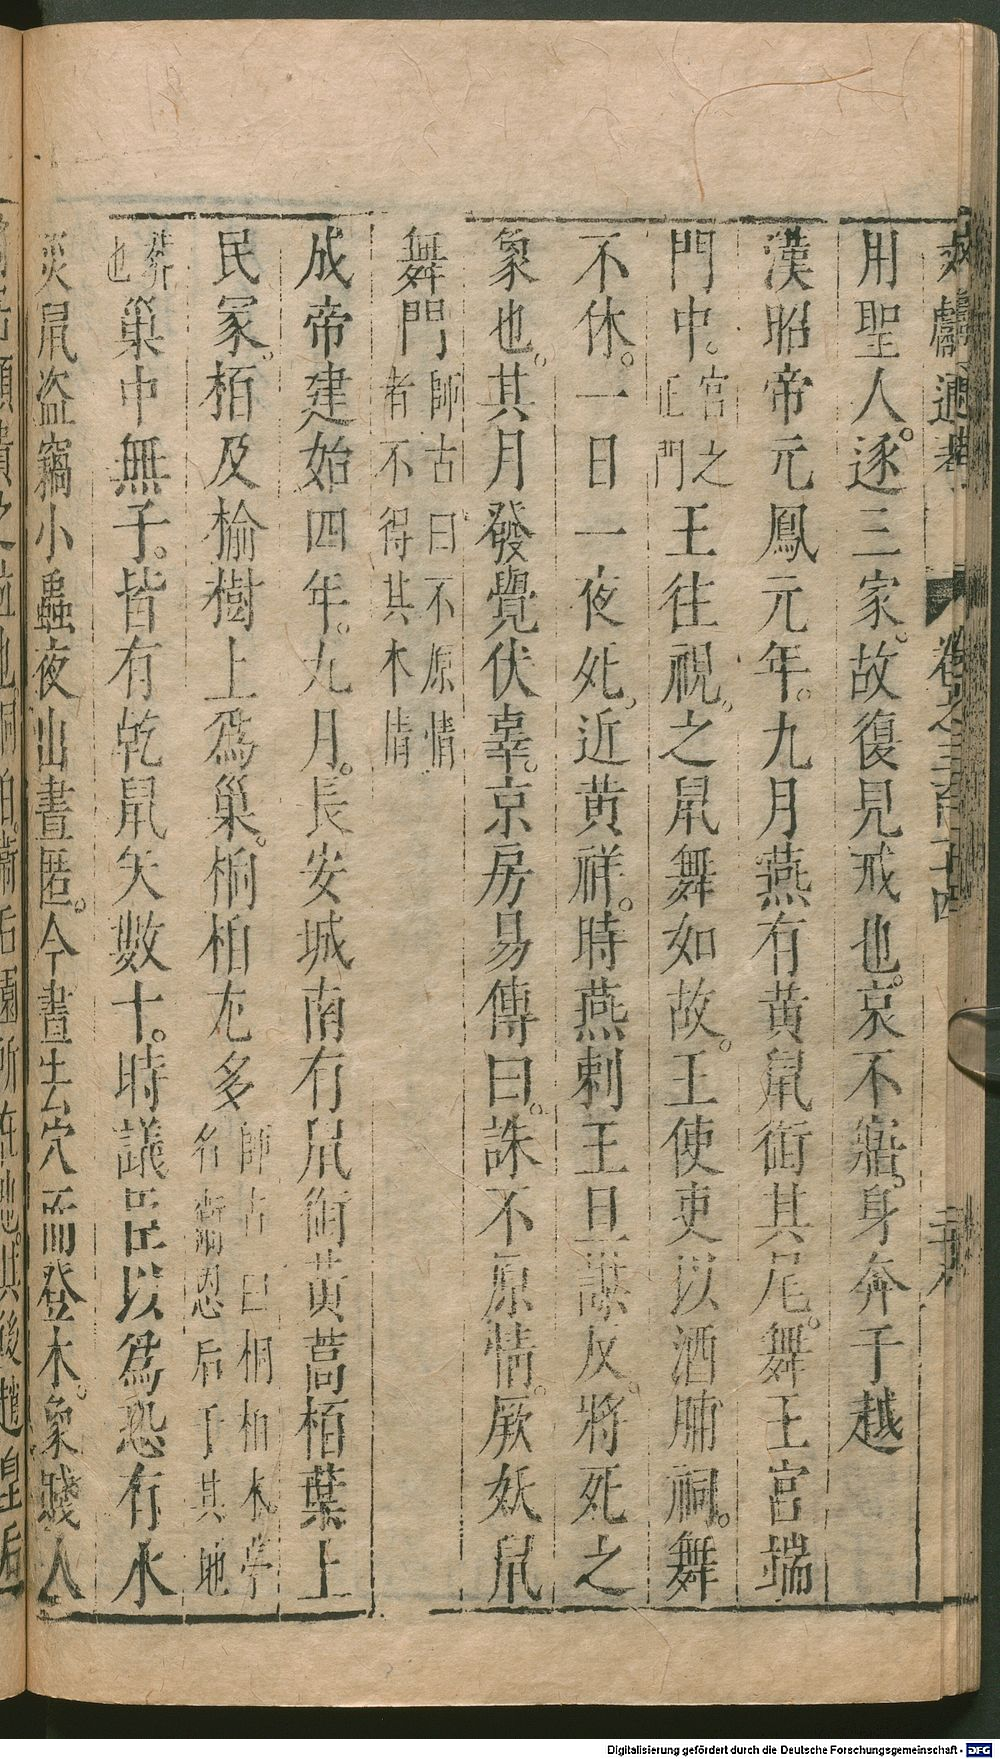 文獻通考 卷之三百十四
用聖人。逐三家。故復見戒也。哀不寤。身奔于越
漢昭帝元鳳元年。九月燕有黄鼠銜其尾。舞王宫端
門中。宫之正門王往視。之鼠舞如故。王使吏以酒脯祠。舞
不休。一日一夜死。近黄祥。時燕剌王旦謀反。將死之
象也。其月發覺伏辜。京房易傳曰。誅不原情。厥妖鼠
舞門師古曰不原情者不得其本情
成帝建始四年。九月。長安城南有鼠銜黄蒿栢葉上
民冡。栢及榆樹上爲巢。桐柏尤多師古曰桐柏本亭名衞思后于其地
葬也巢中無子。皆有乾鼠矢數十。時議臣以爲恐有水
災鼠盗竊小蟲夜出晝匿。今晝去穴而登木。象賤人
所在也。其後趙皇后
Digitalisierung gefördert durch die Deutsche Forschungsgemeinschaft - DFG